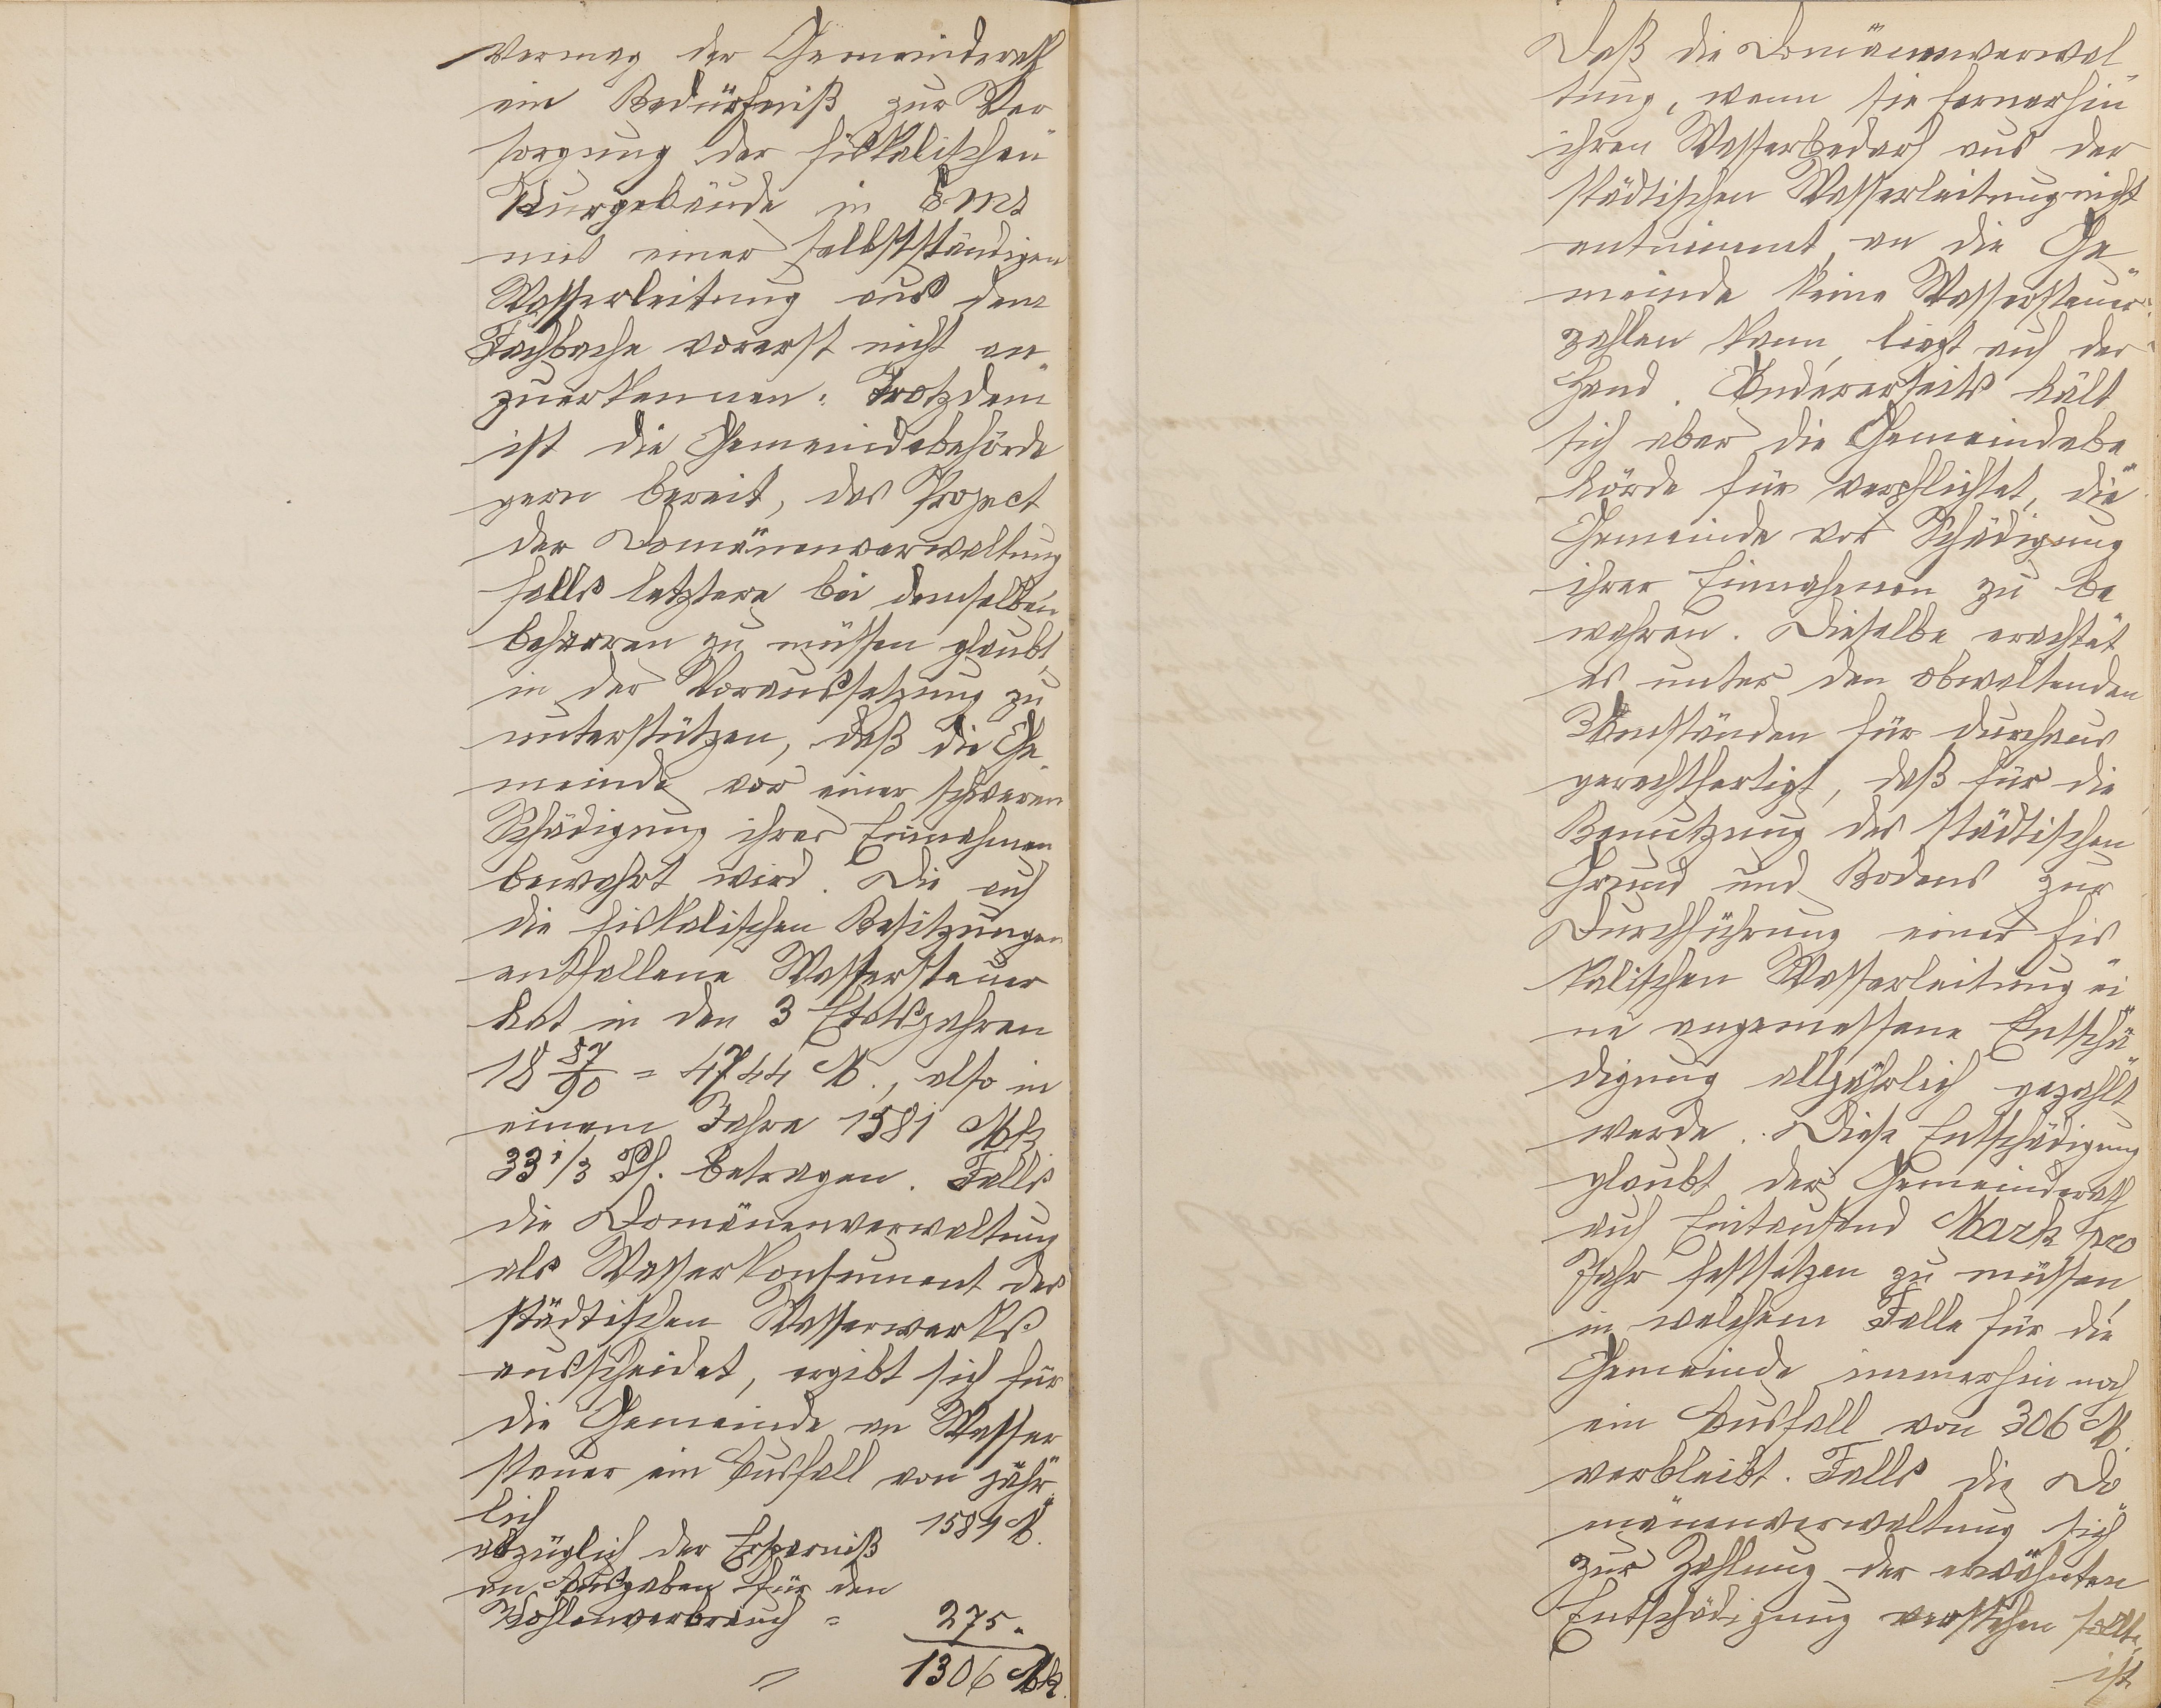 vermag der Gemeinderath
ein Bedürfniß zur Ver
sorgung der fiskalischen
Kurgebäude in Ems
mit einer selbstständigen
Wasserleitung aus dem
Fachbache vorerst nicht an
zuerkennen. Trotzdem
ist die Gemeindebehörde
gern bereit, das Project
der Domänenverwaltung
falls letztere bei demselben
beharren zu müssen glaubt,
in der Voraussetzung zu
unterstützen, daß die Ge
meinde vor einer schweren
Schädigung ihrer Einnahmen
bewahrt wird. Die auf
die fiskalischen Besitzungen
entfallene Wassersteuer
hat in den 3 Etatsjahren
18 87/90 = 4744 M., also in
einem Jahre 1581 Mk
33 1/3 Pf. betragen. Falls
die Domänenverwaltung
als Wasserkonsument des
städtischen Wasserwerks
ausscheidet, ergibt sich für
die Gemeinde an Wasser
steuer ein Ausfall von jähr
lich 1581 M.
abzüglich der Ersparniß
an Ausgaben für den
Kohlenverbrauch = 275 "
= 1306 Mk.
Daß die Domänenverwal
tung, wenn sie fernerhin
ihren Wasserbedarf aus der
städtischen Wasserleitung nicht
entnimmt, an die Ge
meinde keine Wassersteuer
zahlen kann, liegt auf der
Hand. Andererseits hält
sich aber die Gemeindebe
hörde für verpflichtet, die
Gemeinde vor Schädigung
ihrer Einnahmen zu be
wahren. Dieselbe erachtet
es unter den obwaltenden
Umständen für durchaus
gerechtfertigt, daß für die
Benutzung des städtischen
Grund und Bodens zur
Durchführung einer fis
kalischen Wasserleitung ei
ne angemessene Entschä
digung alljährlich gezahlt
werde. Diese Entschädigung
glaubt der Gemeinderath
auf Eintausend Mark pro
Jahr festsetzen zu müssen,
in welchem Falle für die
Gemeinde immerhin noch
ein Ausfall von 306 M.
verbleibt. Falls die Do
mänenverwaltung sich
zur Zahlung der erwähnten
Entschädigung verstehen sollte,
ist